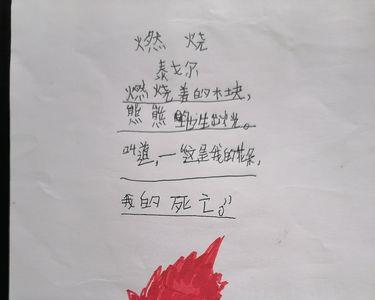 燃 烧
泰戈尔
燃烧着的木块,
熊熊地生出火光。
叫道,一这是我的花朵,
我的死亡。”